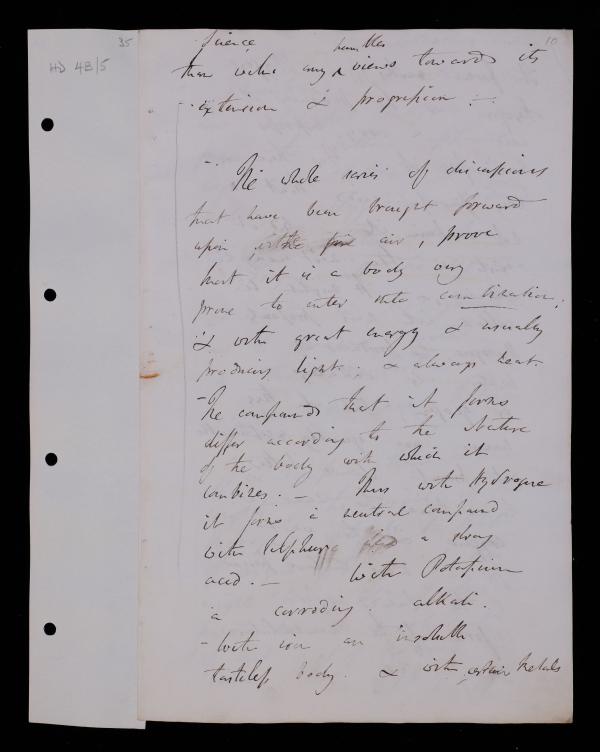 35
10
HD 4B/5
Science, humbler
than with any views towards its
extension & progression. —
— The whole series of discussions
that have been brought forward
upon air, prove
that it is a body very
prone to enter into combination;
& with great energy & usually
producing light; & always heat.
— The compounds that it forms
differ according to the Nature
of the body with which it
combines. — Thus with Hydrogene
it forms a neutral compound
with Sulphur a strong
acid. — With Potassium
a corroding alkali.
— With iron an insoluble
tasteless body. & with certain Metals